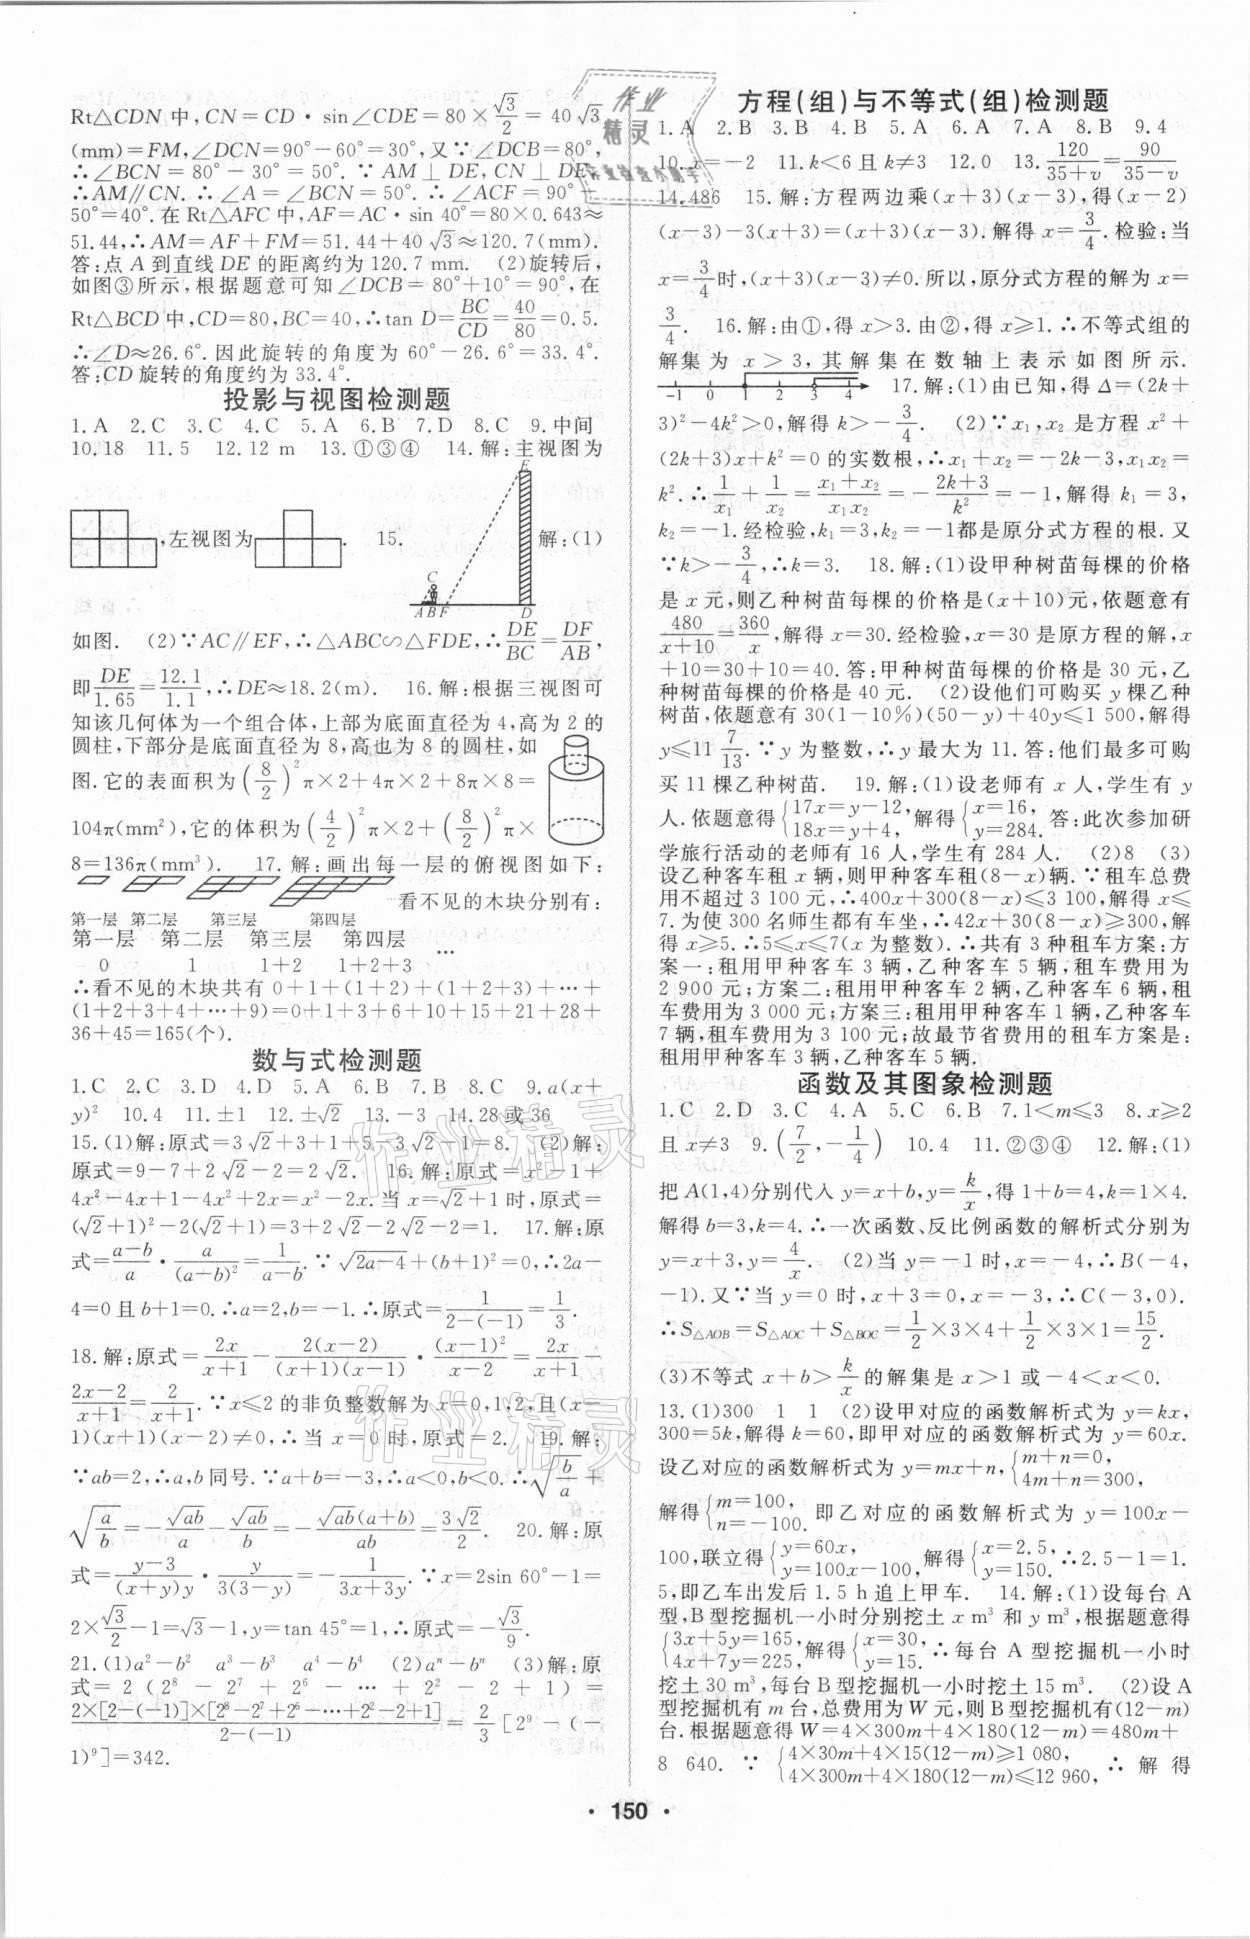 Rt△CDN 中,CN=CD·sin∠CDE=80×√3/2=40√3
(mm)=FM,∠DCN=90°-60°=30°,又∵∠DCB=80°,
∴∠BCN=80°-30°=50°.∵AM⊥DE,CN⊥DE,
∴AM∥CN.∴∠A=∠BCN=50°.∴∠ACF=90°-
50°=40°.在 Rt△AFC 中,AF=AC·sin 40°=80×0.643≈
51.44,∴AM=AF+FM=51.44+40√3≈120.7(mm).
答:点 A 到直线 DE 的距离约为 120.7 mm. (2)旋转后,
如图③所示,根据题意可知∠DCB=80°+10°=90°,在
Rt△BCD 中,CD=80,BC=40,∴tan D=BC/CD=40/80=0.5.
∴∠D≈26.6°.因此旋转的角度为 60°-26.6°=33.4°.
答:CD 旋转的角度约为 33.4°.
投影与视图检测题
1.A 2.C 3.C 4.C 5.A 6.B 7.D 8.C 9.中间
10.18 11.5 12.12 m 13.①③④ 14.解:主视图为
,左视图为 . 15. 解:(1)
E
C
A B F D
如图. (2)∵AC∥EF,∴△ABC∽△FDE,∴DE/BC=DF/AB,
即DE/1.65=12.1/1.1,∴DE≈18.2(m). 16.解:根据三视图可
知该几何体为一个组合体,上部为底面直径为 4,高为 2 的
圆柱,下部分是底面直径为 8,高也为 8 的圆柱,如
图.它的表面积为(8/2)²π×2+4π×2+8π×8=
104π(mm²),它的体积为(4/2)²π×2+(8/2)²π×
8=136π(mm³). 17.解:画出每一层的俯视图如下:
看不见的木块分别有:
第一层 第二层 第三层 第四层
第一层 第二层 第三层 第四层 …
0 1 1+2 1+2+3
∴看不见的木块共有 0+1+(1+2)+(1+2+3)+…+
(1+2+3+4+…+9)=0+1+3+6+10+15+21+28+
36+45=165(个).
数与式检测题
1.C 2.C 3.D 4.D 5.A 6.B 7.B 8.C 9.a(x+
y)² 10.4 11.±1 12.±√2 13.-3 14.28 或 36
15.(1)解:原式=3√2+3+1+5-3√2-1=8. (2)解:
原式=9-7+2√2-2=2√2. 16.解:原式=x²-1+
4x²-4x+1-4x²+2x=x²-2x.当 x=√2+1 时,原式=
(√2+1)²-2(√2+1)=3+2√2-2√2-2=1. 17.解:原
式=(a-b)/a·a/(a-b)²=1/(a-b).∵√(2a-4)+(b+1)²=0,∴2a-
4=0 且 b+1=0.∴a=2,b=-1.∴原式=1/(2-(-1))=1/3.
18.解:原式=2x/(x+1)-2(x-2)/((x+1)(x-1))·(x-1)²/(x-2)=2x/(x+1)-
(2x-2)/(x+1)=2/(x+1).∵x≤2 的非负整数解为 x=0,1,2,且(x-
1)(x+1)(x-2)≠0,∴当 x=0 时,原式=2. 19.解:
∵ab=2,∴a,b 同号.∵a+b=-3,∴a<0,b<0.∴√(b/a)+
√(a/b)=-√ab/a-√ab/b=-√ab(a+b)/ab=3√2/2. 20.解:原
式=(y-3)/((x+y)y)·y/(3(3-y))=-1/(3x+3y).∵x=2sin 60°-1=
2×√3/2-1=√3-1,y=tan 45°=1,∴原式=-√3/9.
21.(1)a²-b² a³-b³ a⁴-b⁴ (2)aⁿ-bⁿ (3)解:原
式=2(2⁸-2⁷+2⁶-…+2²-2+1)=
2×[2-(-1)]×[2⁸-2⁷+2⁶-…+2²-2+1]/(2-(-1))=2/3[2⁹-(-
1)⁹]=342.
方程(组)与不等式(组)检测题
1.A 2.B 3.B 4.B 5.A 6.A 7.A 8.B 9.4
10.x=-2 11.k<6 且 k≠3 12.0 13.120/(35+v)=90/(35-v)
14.486 15.解:方程两边乘(x+3)(x-3),得(x-2)
(x-3)-3(x+3)=(x+3)(x-3).解得 x=3/4.检验:当
x=3/4时,(x+3)(x-3)≠0.所以,原分式方程的解为 x=
3/4. 16.解:由①,得 x>3.由②,得 x≥1.∴不等式组的
解集为 x>3,其解集在数轴上表示如图所示.
-1 0 1 2 3 4 17.解:(1)由已知,得 Δ=(2k+
3)²-4k²>0,解得 k>-3/4. (2)∵x₁,x₂ 是方程 x²+
(2k+3)x+k²=0 的实数根,∴x₁+x₂=-2k-3,x₁x₂=
k².∴1/x₁+1/x₂=(x₁+x₂)/x₁x₂=-(2k+3)/k²=-1,解得 k₁=3,
k₂=-1.经检验,k₁=3,k₂=-1都是原分式方程的根.又
∵k>-3/4,∴k=3. 18.解:(1)设甲种树苗每棵的价格
是 x 元,则乙种树苗每棵的价格是(x+10)元,依题意有
480/(x+10)=360/x,解得 x=30.经检验,x=30 是原方程的解,x
+10=30+10=40.答:甲种树苗每棵的价格是 30 元,乙
种树苗每棵的价格是 40 元. (2)设他们可购买 y 棵乙种
树苗,依题意有 30(1-10%)(50-y)+40y≤1 500,解得
y≤11 7/13.∵y 为整数,∴y 最大为 11.答:他们最多可购
买 11 棵乙种树苗. 19.解:(1)设老师有 x 人,学生有 y
人.依题意得{17x=y-12, 18x=y+4,解得{x=16, y=284. 答:此次参加研
学旅行活动的老师有 16 人,学生有 284 人. (2)8 (3)
设乙种客车租 x 辆,则甲种客车租(8-x)辆.∵租车总费
用不超过 3 100 元,∴400x+300(8-x)≤3 100,解得 x≤
7.为使 300 名师生都有车坐,∴42x+30(8-x)≥300,解
得 x≥5.∴5≤x≤7(x 为整数).∴共有 3 种租车方案:方
案一:租用甲种客车 3 辆,乙种客车 5 辆,租车费用为
2 900 元;方案二:租用甲种客车 2 辆,乙种客车 6 辆,租
车费用为 3 000 元;方案三:租用甲种客车 1 辆,乙种客车
7 辆,租车费用为 3 100 元;故最节省费用的租车方案是:
租用甲种客车 3 辆,乙种客车 5 辆.
函数及其图象检测题
1.C 2.D 3.C 4.A 5.C 6.B 7.1<m≤3 8.x≥2
且 x≠3 9.(7/2,-1/4) 10.4 11.②③④ 12.解:(1)
把 A(1,4)分别代入 y=x+b,y=k/x,得 1+b=4,k=1×4.
解得 b=3,k=4.∴一次函数、反比例函数的解析式分别为
y=x+3,y=4/x. (2)当 y=-1 时,x=-4,∴B(-4,
-1).又∵当 y=0 时,x+3=0,x=-3,∴C(-3,0).
∴S△AOB=S△AOC+S△BOC=1/2×3×4+1/2×3×1=15/2.
(3)不等式 x+b>k/x的解集是 x>1 或-4<x<0.
13.(1)300 1 1 (2)设甲对应的函数解析式为 y=kx,
300=5k,解得 k=60,即甲对应的函数解析式为 y=60x.
设乙对应的函数解析式为 y=mx+n,{m+n=0, 4m+n=300,
解得{m=100, n=-100. 即乙对应的函数解析式为 y=100x-
100,联立得{y=60x, y=100x-100,解得{x=2.5, y=150. ∴2.5-1=1.
5,即乙车出发后 1.5 h 追上甲车. 14.解:(1)设每台 A
型,B 型挖掘机一小时分别挖土 x m³ 和 y m³,根据题意得
{3x+5y=165, 4x+7y=225,解得{x=30, y=15. ∴每台 A 型挖掘机一小时
挖土 30 m³,每台 B 型挖掘机一小时挖土 15 m³. (2)设 A
型挖掘机有 m 台,总费用为 W 元,则 B 型挖掘机有(12-m)
台.根据题意得 W=4×300m+4×180(12-m)=480m+
8 640.∵{4×30m+4×15(12-m)≥1 080, 4×300m+4×180(12-m)≤12 960,∴解得
· 150 ·
作业
精灵
作业精灵
作业精灵